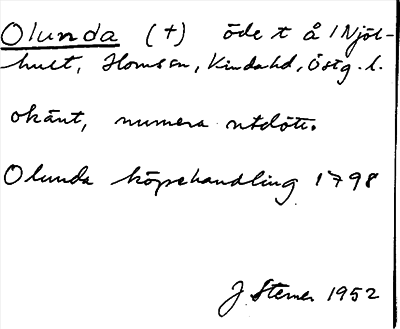 Olunda (†) öde t å / Njöl-
hult, Horns sn, Kinda hd, Östg. l.
okänt, numera utdött.
Olunda köpehandling 1798
J Sterner 1952